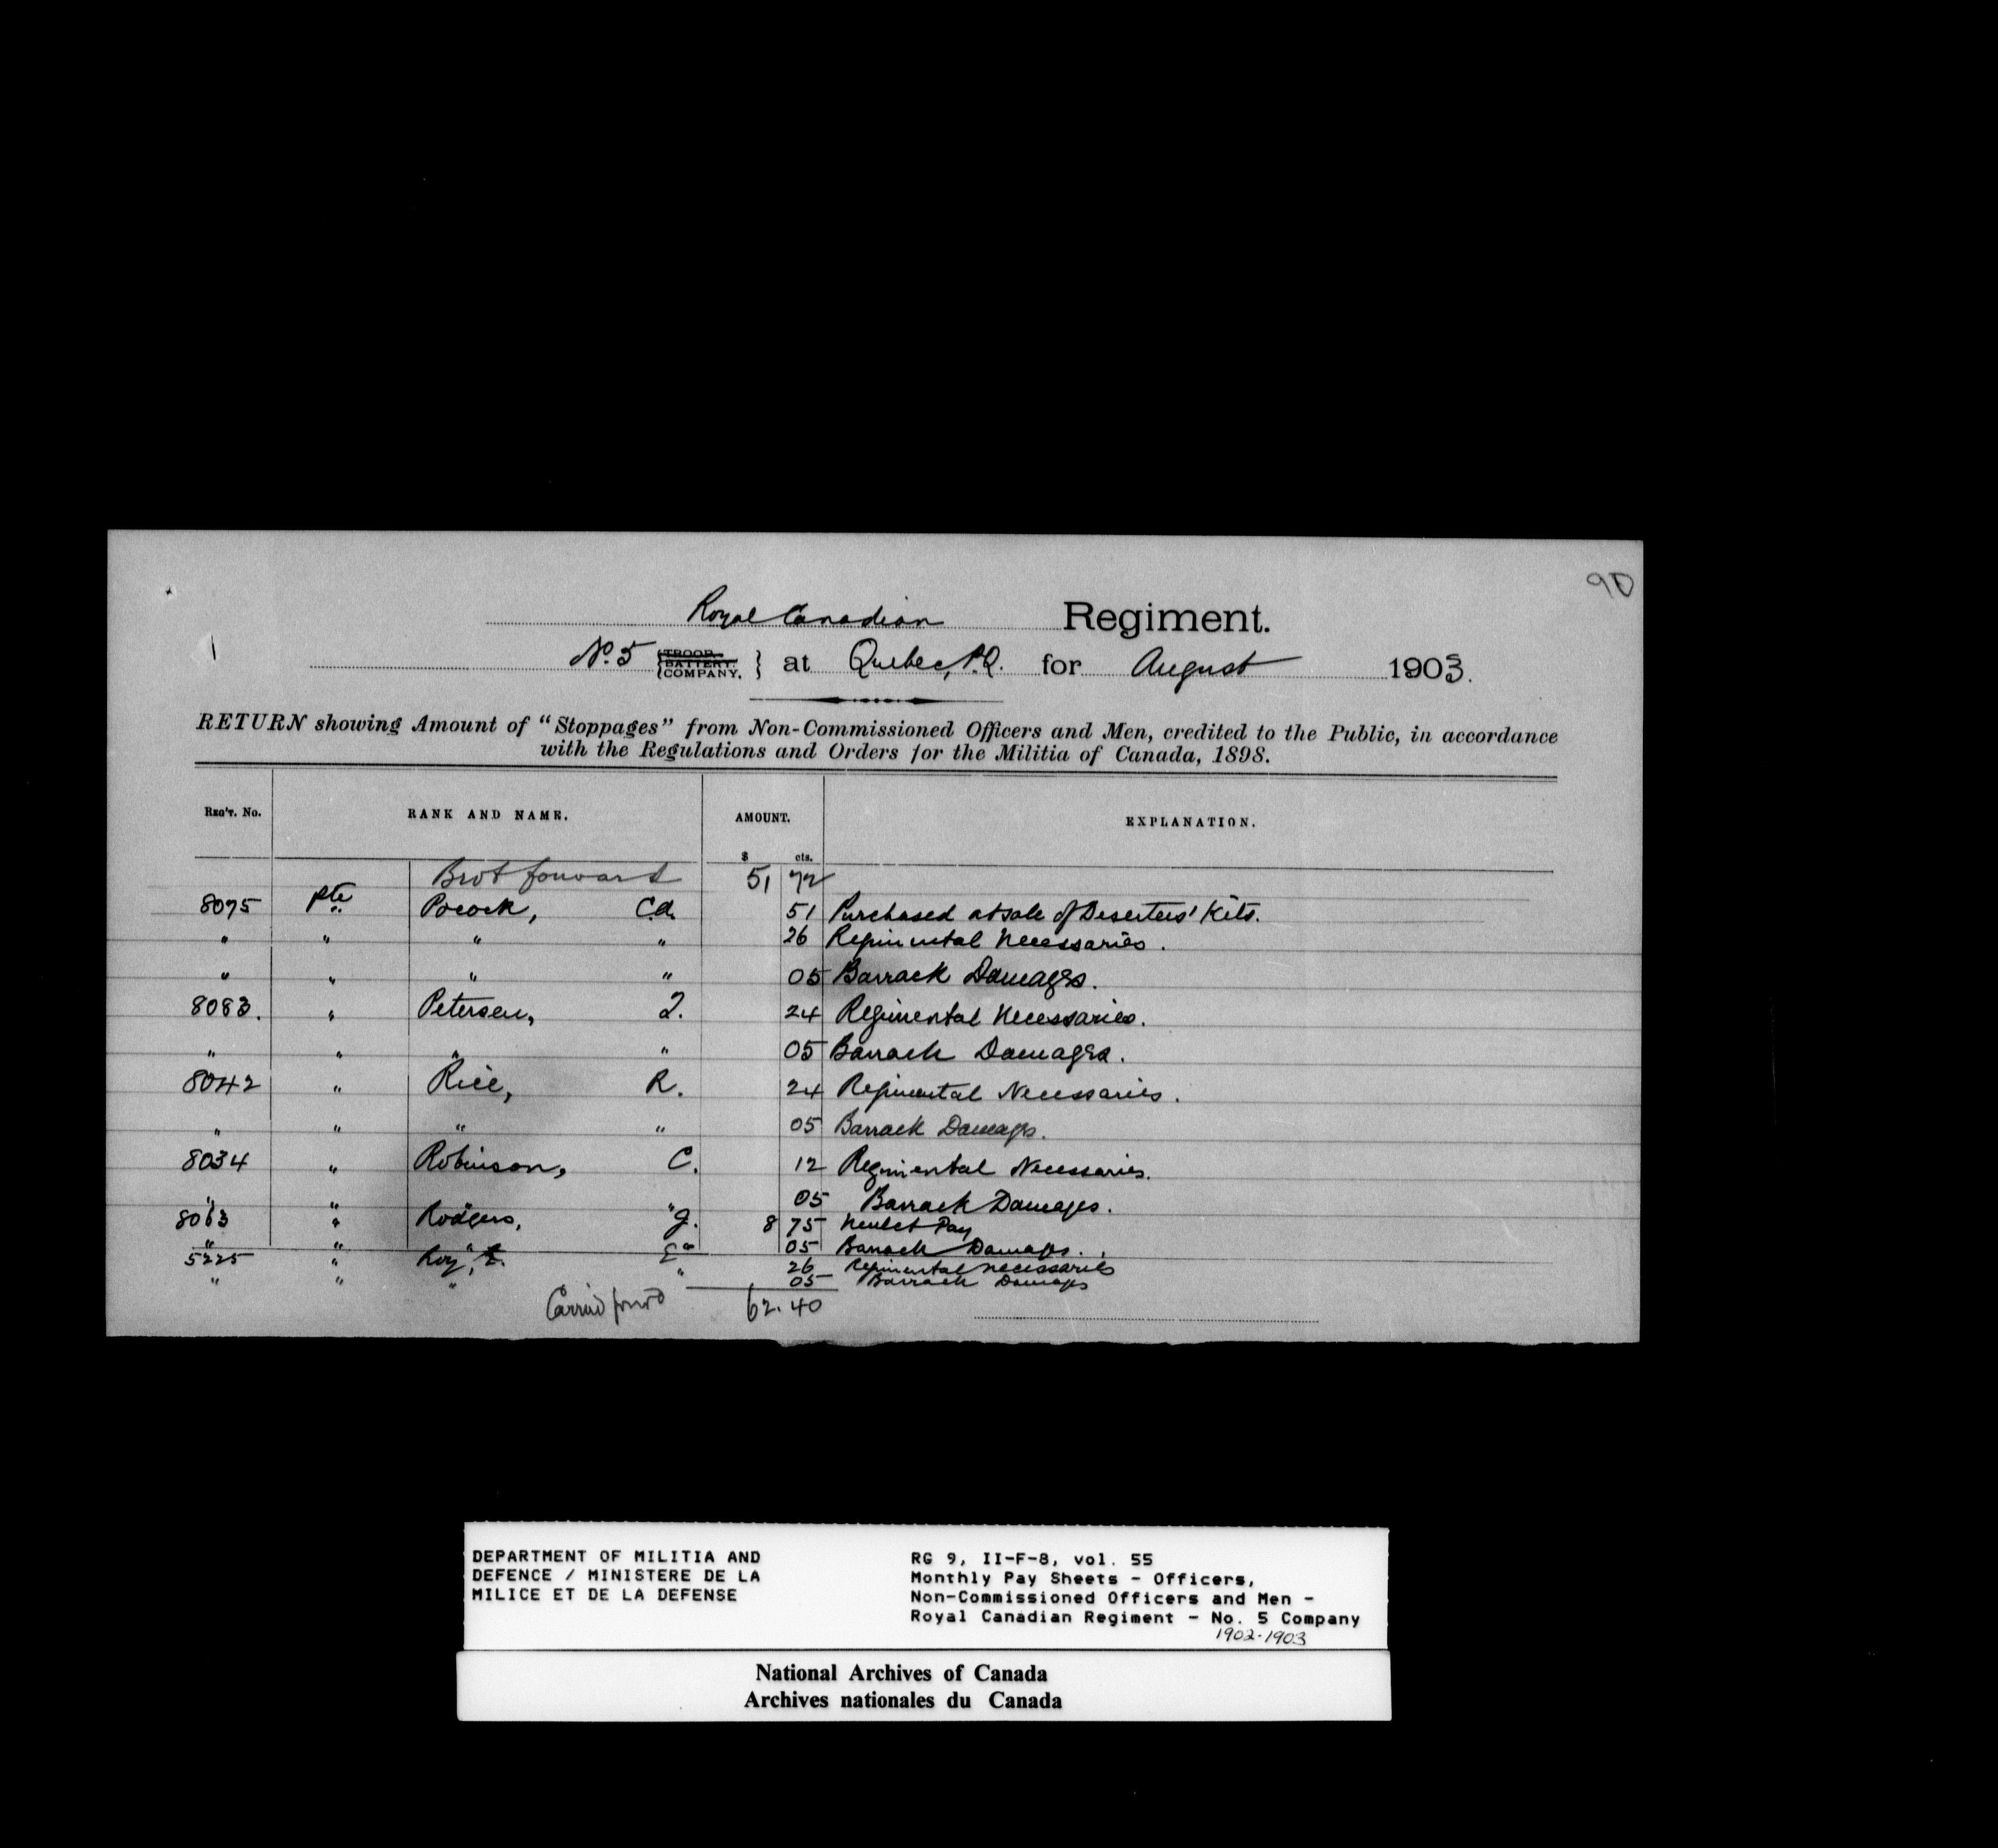 90
Royal Canadian Regiment.
1
No. 5 {TROOP. BATTERY. COMPANY.} at Quebec, P.Q. for August 1903.
RETURN showing Amount of "Stoppages" from Non-Commissioned Officers and Men, credited to the Public, in accordance
with the Regulations and Orders for the Militia of Canada, 1898.
REG'T. No. RANK AND NAME. AMOUNT. EXPLANATION.
$ cts.
Brot forward 51 72
8075 Pte Pocock, C.A. 51 Purchased at sale of Deserters' Kits.
" " " " 26 Regimental Necessaries.
" " " " 05 Barrack Damages.
8083. " Petersen, 24 Regimental Necessaries.
" " " " 05 Barrack Damages.
8042 " Rice, R. 24 Regimental Necessaries.
" " " " 05 Barrack Damages.
8034 " Robinson, C. 12 Regimental Necessaries.
" " " " 05 Barrack Damages.
8063 " Rodgers, J. 8 75 Pay
" " " " 05 Barrack Damages.
5225 " Roy, E. 26 Regimental necessaries
" " " " 05 Barrack Damages
Carried forwd 62.40
DEPARTMENT OF MILITIA AND
DEFENCE / MINISTERE DE LA
MILICE ET DE LA DEFENSE
RG 9, II-F-8, vol. 55
Monthly Pay Sheets - Officers,
Non-Commissioned Officers and Men -
Royal Canadian Regiment - No. 5 Company
1902-1903
National Archives of Canada
Archives nationales du Canada